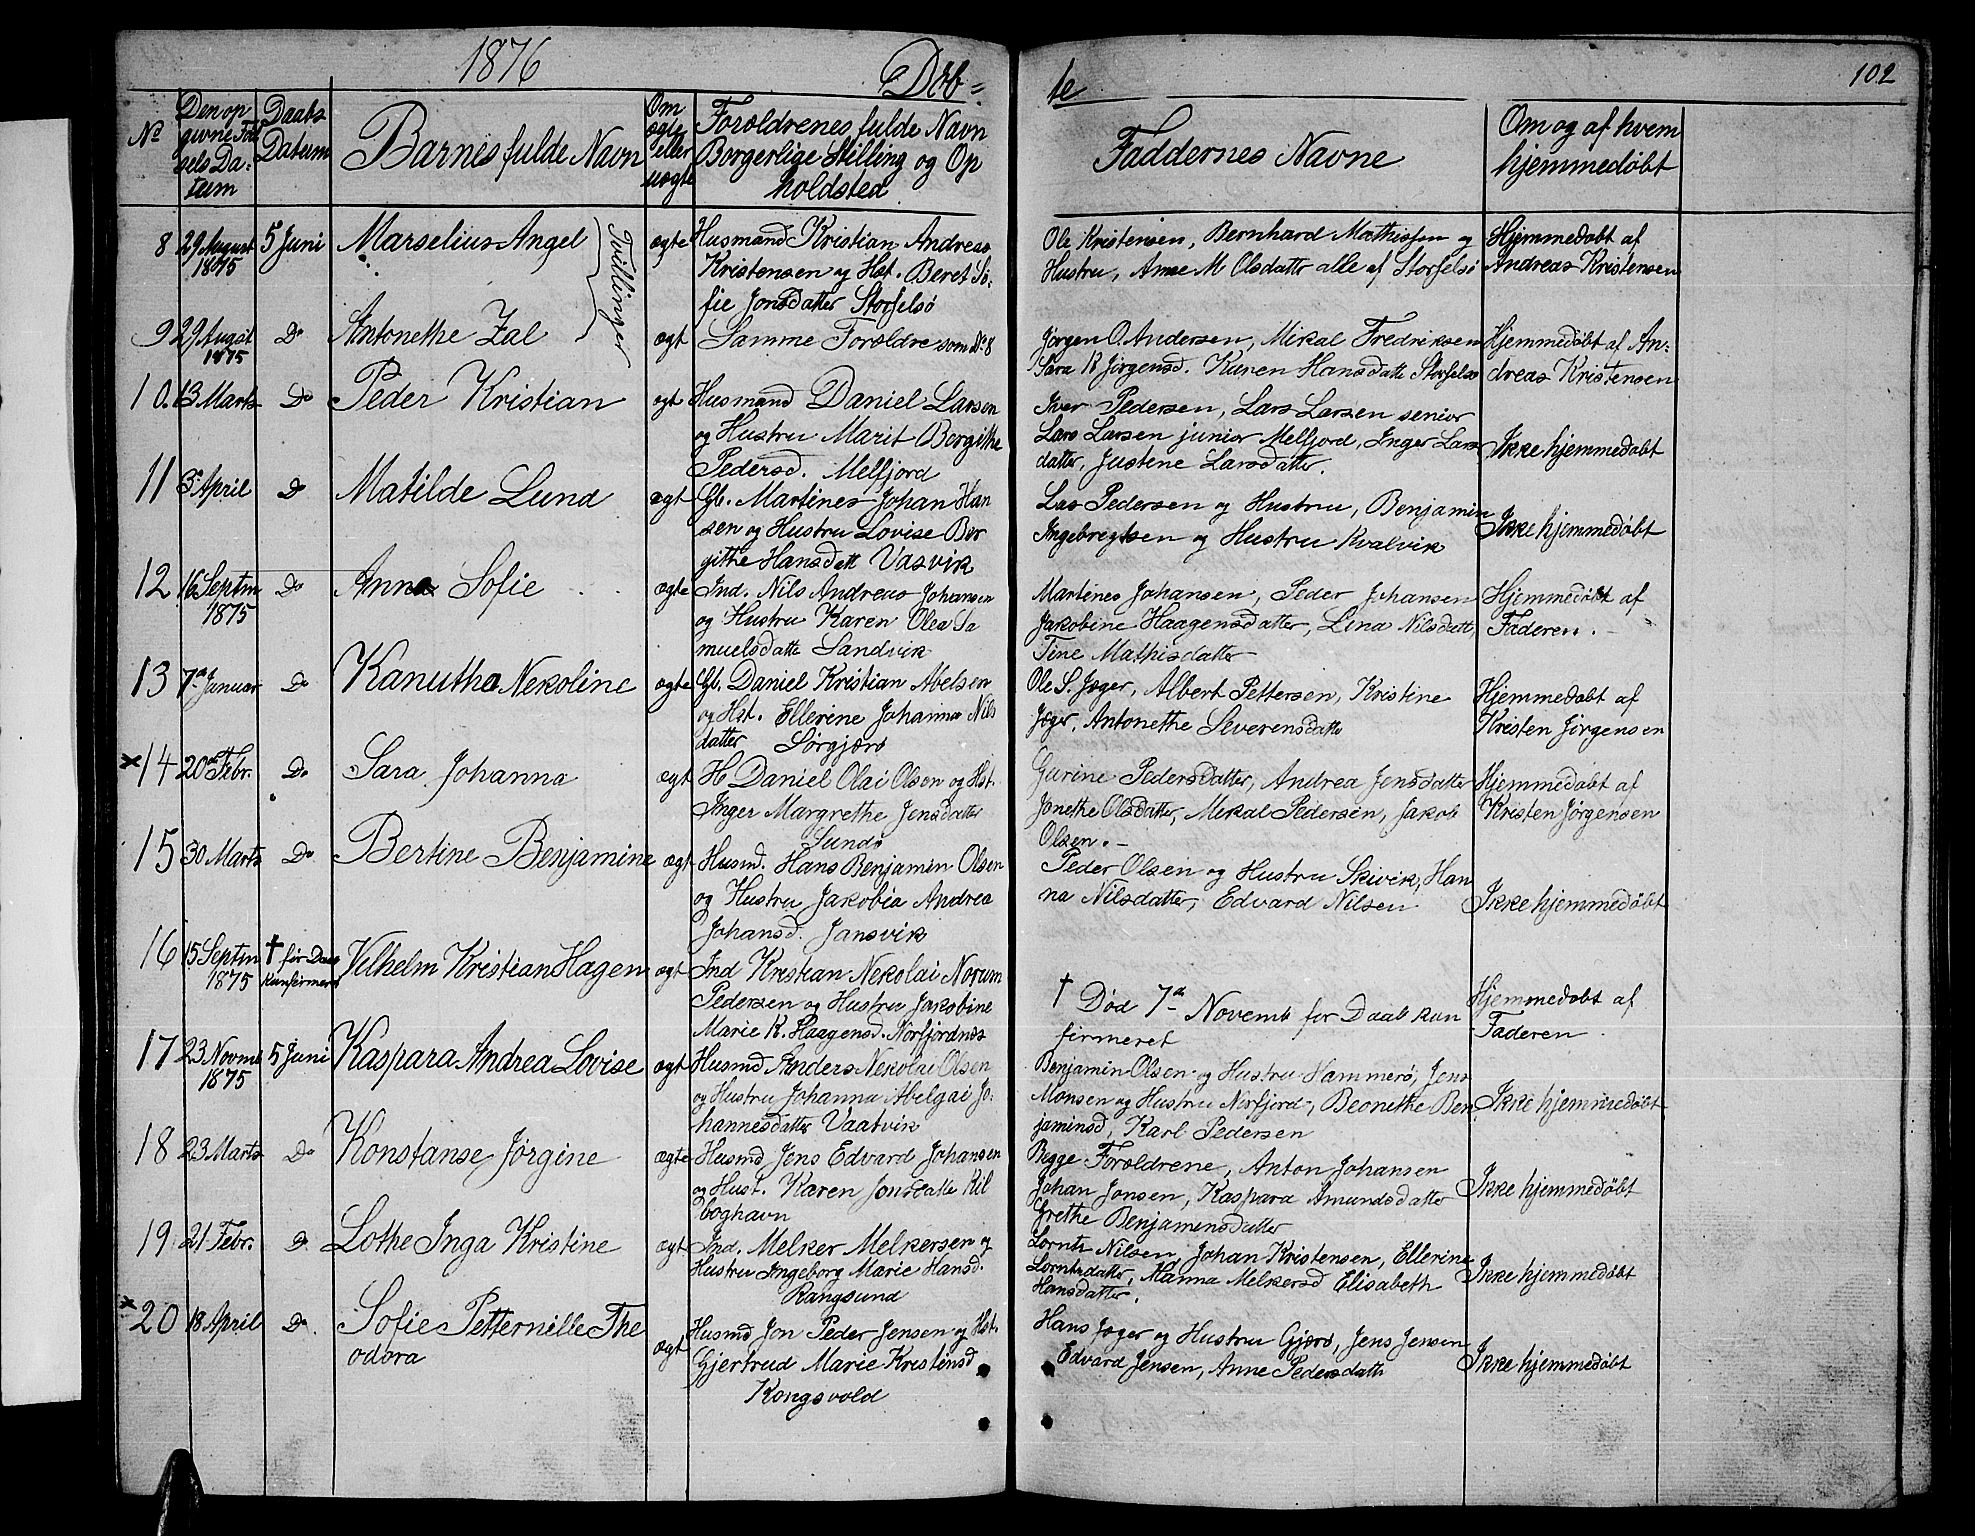 1876
Døb=
te
102
No
Den op
givne Fød
sels Da-
tum
Daabs
Datum
Barnes fulde Navn
Om
ægte
eller
uægte
Forældrenes fulde Navn
Borgerlige Stilling og Op
holdsted
Faddernes Navne
Om og af hvem
hjemmedøbt
8 29 August 5 Juni Marselius Angel Tvillinger ægte Husmand Kristian Andreas
1875 Kristensen og Hst. Beret So-
fie Jonsdatter Storselsö
Ole Kristensen, Bernhard Mathissen og
Hustru, Anne M Olsdatter alle af Storselsö
Hjemmedøbt af
Andreas Kristensen
9 29 Augst Do Antonethe Zal ægt Samme Forældre som No 8
1875
Jørgen O. Andersen, Mikal Fredriksen
Sara R Jørgensd. Karen Hansdatte Storselsö
Hjemmedøbt af An-
dreas Kristensen
10. 13 Marts Do Peder Kristian ægt Husmand Daniel Larsen
og Hustru Marit Bergithe
Pedersd. Melfjord
Iver Pedersen, Lars Larsen senior
Lars Larsen junior Melfjord, Inger Lars
datter, Justene Larsdatter.
Ikke hjemmedøbt
11 3 April Do Matilde Lund ægt Gb. Martines Johan Han
sen og Hustru Lovise Ber
githe Hansdatt Vasvik
Lars Pedersen og Hustru, Benjamin
Ingebregtsen og Hustru Kvalvik
Ikke hjemmedøbt
12 16 Septm Do Anna Sofie ægte Ind. Nils Andreas Johansen
1875 og Hustru Karen Olea Sa
muelsdatte Sandvik
Martines Johansen, Peder Johansen
Jakobine Haagensdatter, Lina Nilsdatt,
Tine Mathisdatter
Hjemmedøbt af
Faderen.
13 7de Januar Do Kanutha Nekoline ægte Gb. Daniel Kristian Abelsen
og Hst. Ellerine Johanna Nils
datter Sørgjærö
Ole S. Jæger, Albert Pettersen, Kristine
Jæger, Antonethe Severensdatte
Hjemmedøbt af
Kristen Jørgensen
x 14 20de Febr. Do Sara Johanna ægt H Daniel Olai Olsen og Hst.
Inger Margrethe Jensdatter
Sundö
Gurine Pedersdatter, Andrea Jensdatter
Jonethe Olsdatter, Mikal Pedersen, Jakob
Olsen.-
Hjemmedøbt af
Kristen Jørgensen
15 30 Marts Do Bertine Benjamine ægt Husmd. Hans Benjamin Olsen
og Hustru Jakobia Andrea
Johansd. Jansvik
Peder Olsen og Hustru Skivik, Han
na Nilsdatter, Edvard Nilsen
Ikke hjemmedøbt
16 15 Septm † før Daab Vilhelm Kristian Hagen ægt Ind Kristian Nekolai Norum
1875 Kunfirmert Pedersen og Hustru Jakobine
Marie K. Haagensd. Norfjordnes
† Død 7de Novemb før Daab kun
firmeret
Hjemmedøbt af
Faderen.
17 23 Novmb 5 Juni Kaspara Andrea Lovise ægt Husmd Anders Nekolai Olsen
1875 og Hustru Johanna Abelgai Jo-
hannesdatter Vaatvik
Benjamin Olsen og Hustru Hammerö, Jens
Monsen og Hustru Norfjord, Beonethe Ben
jaminsd, Karl Pedersen
Ikke hjemmedøbt
18 23 Marts Do Konstanse Jørgine ægte Husmd Jens Edvard Johansen
og Hust. Karen Jonsdatte Kil
boghavn
Begge Forældrene, Anton Johansen
Johan Jonsen, Kaspara Amundsdatter
Grethe Benjamensdatter
Ikke hjemmedøbt
19. 21 Febr. Do Lothe Inga Kristine ægt Ind. Melker Melkersen og
Hustru Ingeborg Marie Hansd.
Rangsund
Lornts Nilsen, Johan Kristensen, Ellerine
Lorntsdatter, Hanna Melkersd Elisabeth
Hansdatter.
Ikke hjemmedøbt
x 20 18 April Do. Sofie Petternille The ægt Husmd Jon Peder Jensen og Hst.
odora Gjertrud Marie Kristensd
Kongsvold
Hans Jæger og Hustru Gjærö, Jens Jensen
Edvard Jensen, Anne Pedersdatte
Ikke hjemmedøbt